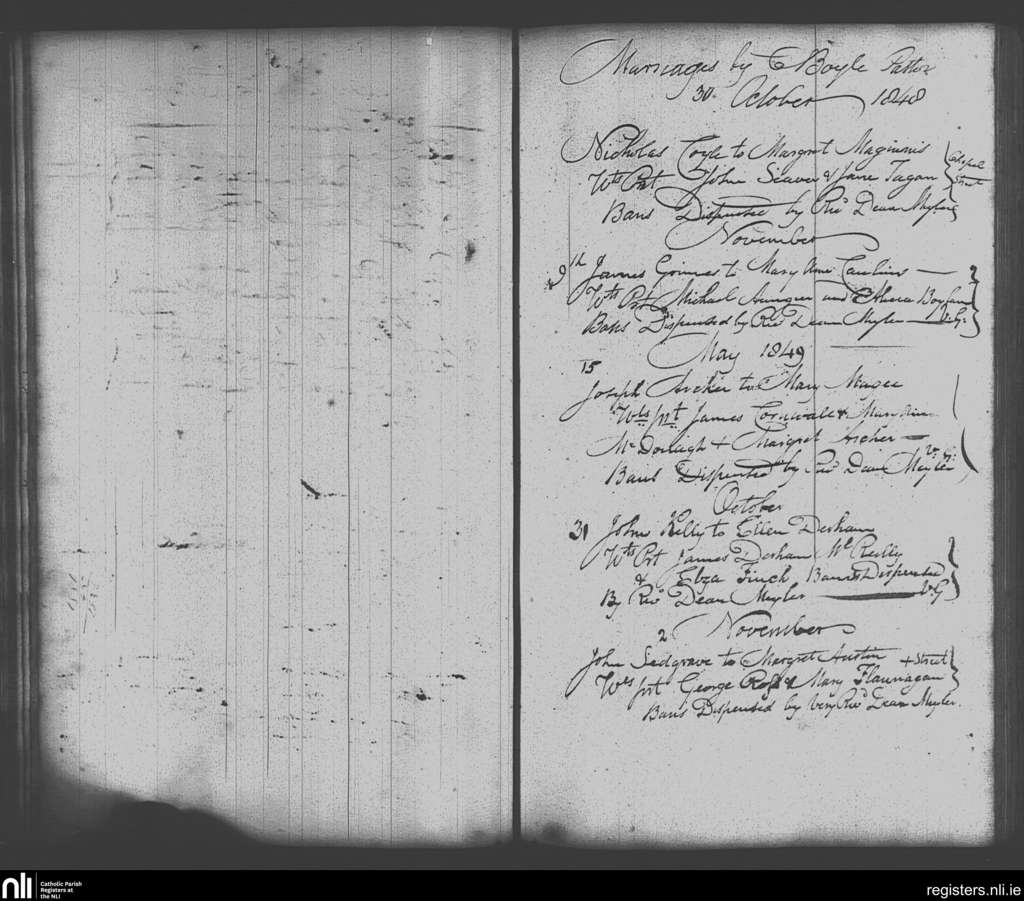 Marriages by C Boyle Pastor
30 October 1848
Nicholas Coyle to Margret Maginnis
Wts Prst John Seaver & Jane Fagan
Chapel Street
Bans Dispensed by Revd Dean Meyler
November
9th James Grimes to Mary Ann
Wts Prst Michael and
Bans Dispensed by Revd Dean Meyler V.G.
May 1849
15
Joseph Archer to Mary Magee
Wts Prt James Cornwall &
Mc Donagh + Margret Archer
Bans Dispensed by Revd Dean Meyler V.G.
October
31 John Kelly to Ellen Derham
Wts Prst James Derham Mc Reilly
& Eliza Finch Banns Dispensed
By Revd Dean Meyler V.G
2 November
John Sedgrave to Margret Austin + Street
Wts prt George Ross & Mary Flannagan
Bans Dispensed by Very Revd Dean Meyler.
nli
Catholic Parish
Registers at
the NLI
registers.nli.ie